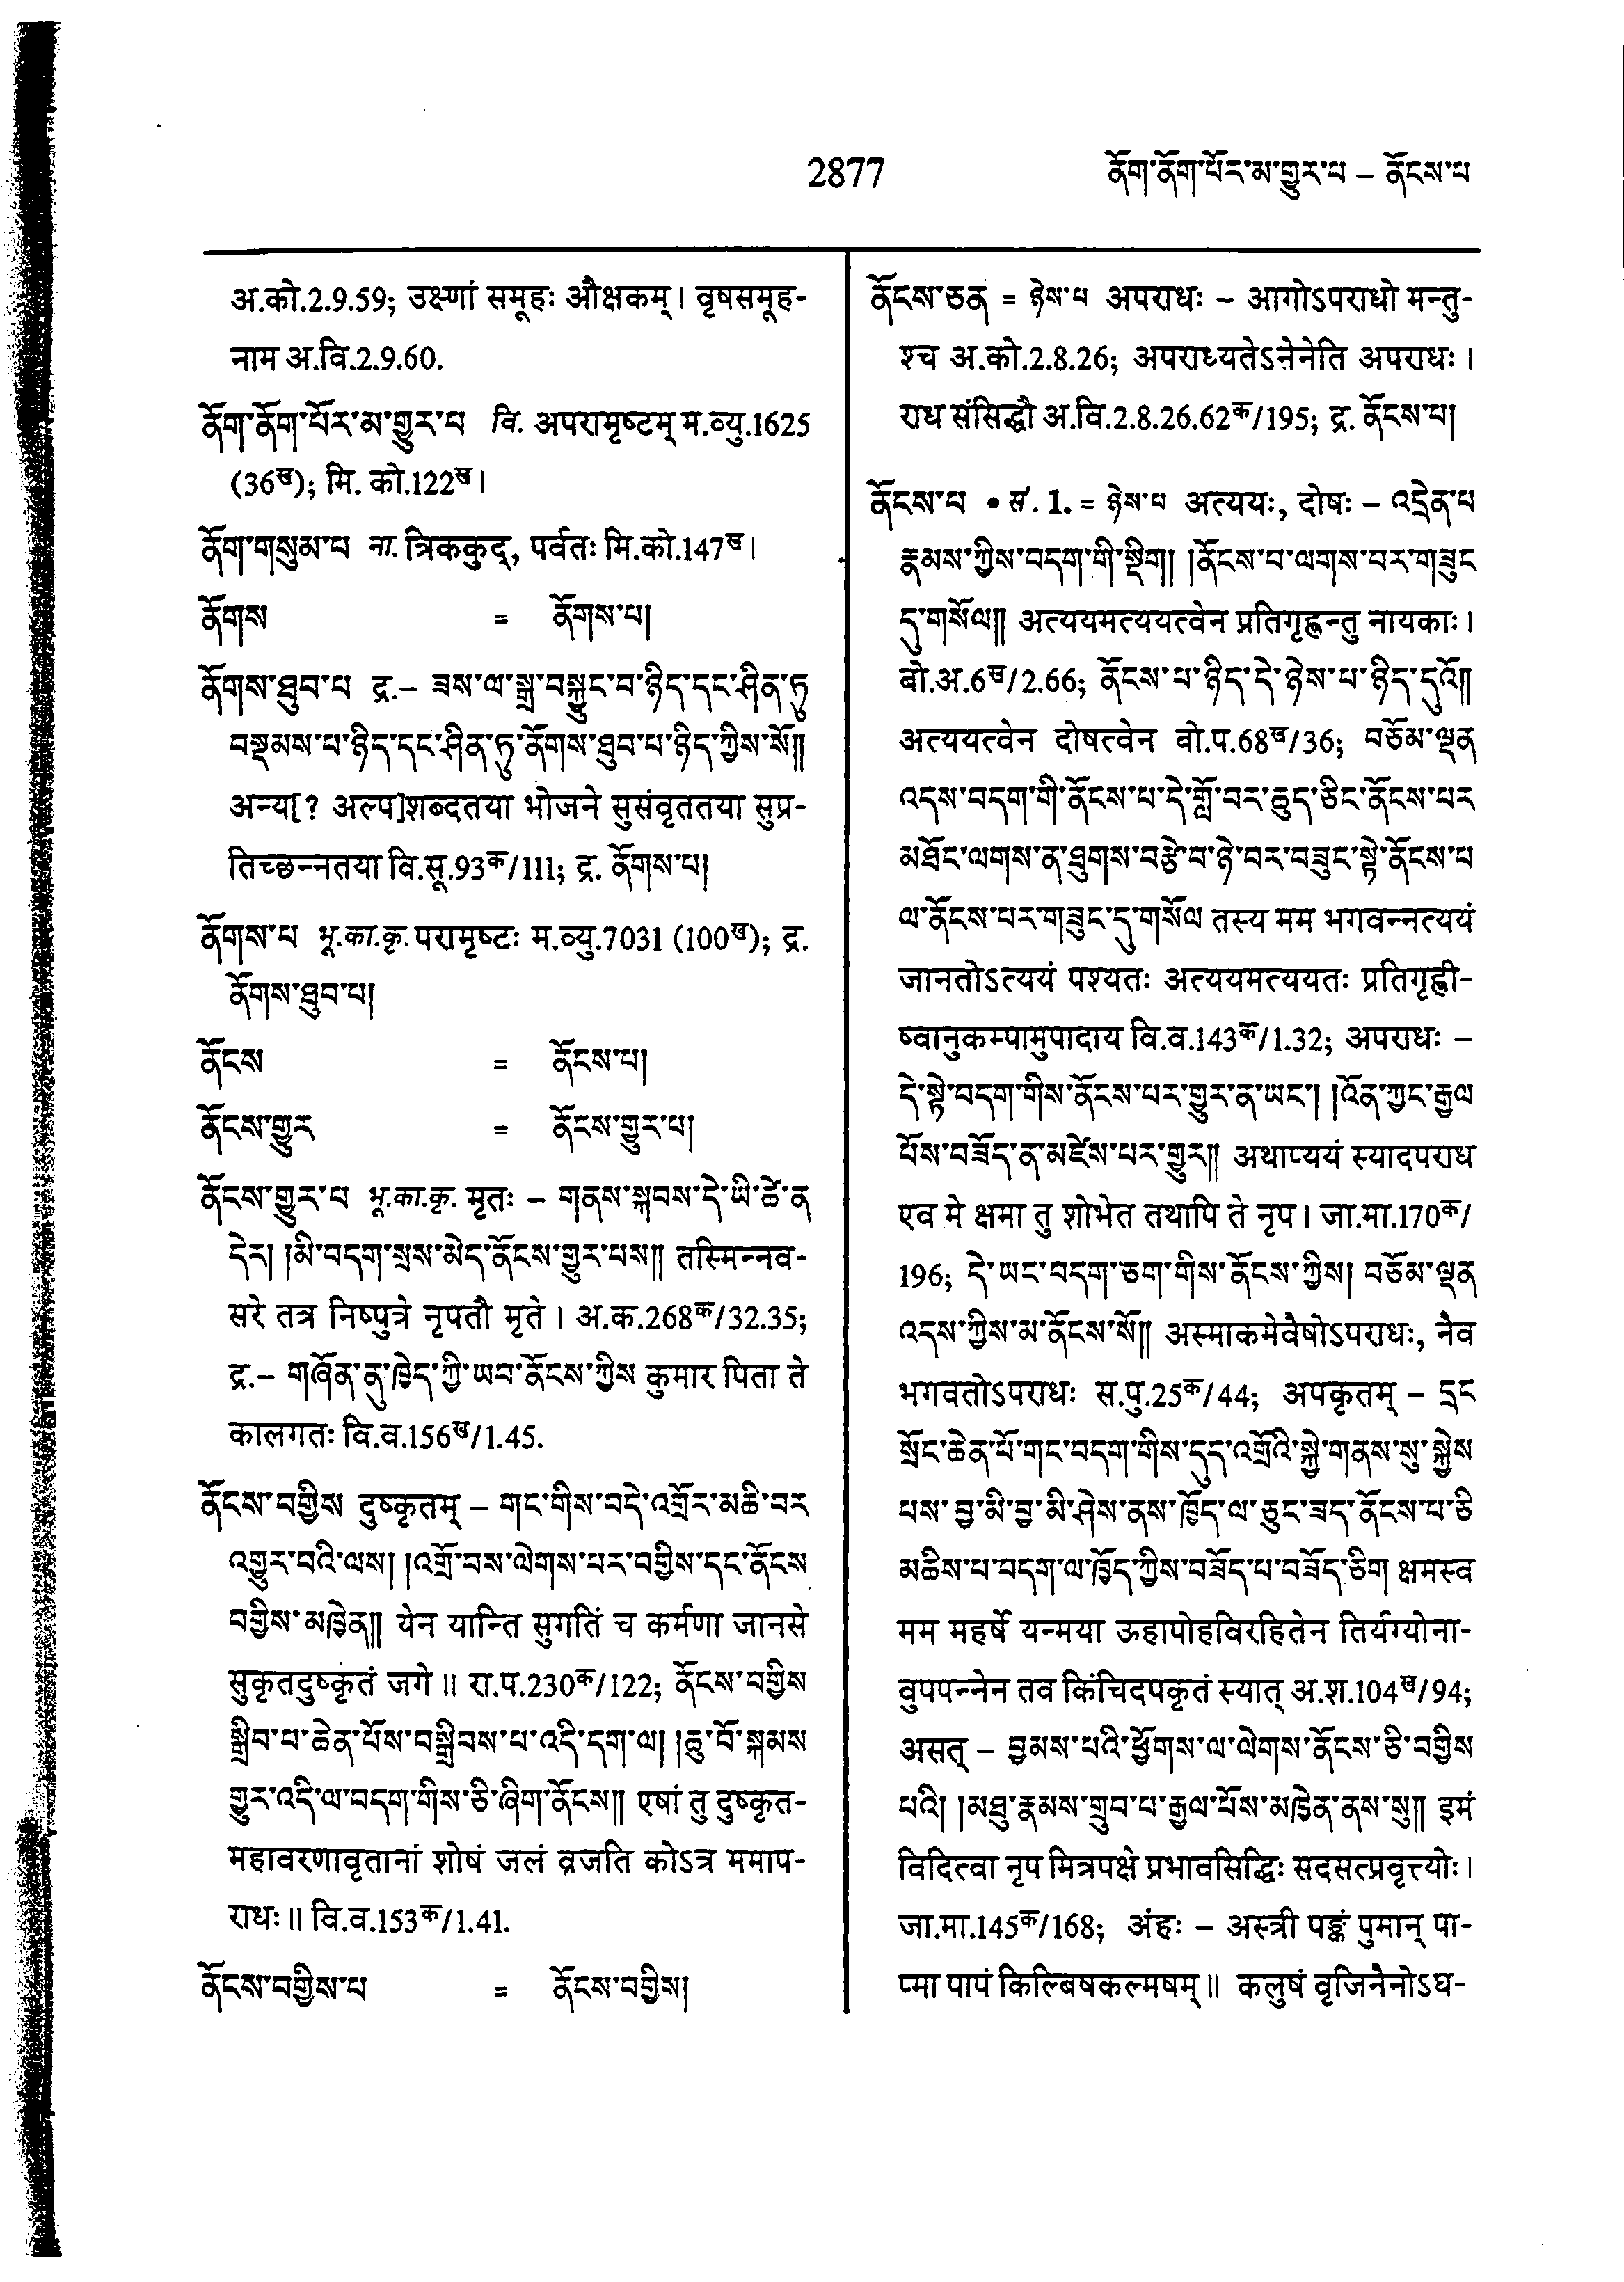 2877
ནོག་ནོག་པོར་མ་གྱུར་པ – ནོངས་པ
अ.को.2.9.59; उक्ष्णां समूहः औक्षकम् । वृषसमूह-
नाम अ.वि.2.9.60.
ནོག་ནོག་པོར་མ་གྱུར་པ वि. अपरामृष्टम् म.व्यु.1625
(36ख); मि. को.122ख ।
ནོག་གསུམ་པ ना. त्रिककुद्, पर्वतः मि.को.147ख ।
ནོགས = ནོགས་པ།
ནོགས་ཐུབ་པ द्र.– ཟས་ལ་སྒྲ་བསྐྱུང་བ་ཉིད་དང་ཤིན་ཏུ
བསྡམས་པ་ཉིད་དང་ཤིན་ཏུ་ནོགས་ཐུབ་པ་ཉིད་ཀྱིས་སོ༎
अन्य[? अल्प]शब्दतया भोजने सुसंवृततया सुप्र-
तिच्छन्नतया वि.सू.93क/111; द्र. ནོགས་པ།
ནོགས་པ भू.का.कृ. परामृष्टः म.व्यु.7031 (100ख); द्र.
ནོགས་ཐུབ་པ།
ནོངས = ནོངས་པ།
ནོངས་གྱུར = ནོངས་གྱུར་པ།
ནོངས་གྱུར་པ भू.का.कृ. मृतः – གནས་སྐབས་དེ་ཡི་ཚེ་ན
དེར། །མི་བདག་སྲས་མེད་ནོངས་གྱུར་པས༎ तस्मिन्नव-
सरे तत्र निष्पुत्रे नृपतौ मृते । अ.क.268क/32.35;
द्र.– གཞོན་ནུ་ཁྱེད་ཀྱི་ཡབ་ནོངས་ཀྱིས कुमार पिता ते
कालगतः वि.व.156ख/1.45.
ནོངས་བགྱིས दुष्कृतम् – གང་གིས་བདེ་འགྲོར་མཆི་བར
འགྱུར་བའི་ལས། །འགྲོ་བས་ལེགས་པར་བགྱིས་དང་ནོངས
བགྱིས་མཁྱེན༎ येन यान्ति सुगतिं च कर्मणा जानसे
सुकृतदुष्कृतं जगे ॥ रा.प.230क/122; ནོངས་བགྱིས
སྒྲིབ་པ་ཆེན་པོས་བསྒྲིབས་པ་འདི་དག་ལ། །ཆུ་བོ་སྐམས
གྱུར་འདི་ལ་བདག་གིས་ཅི་ཞིག་ནོངས༎ एषां तु दुष्कृत-
महावरणावृतानां शोषं जलं व्रजति कोऽत्र ममाप-
राधः ॥ वि.व.153क/1.41.
ནོངས་བགྱིས་པ = ནོངས་བགྱིས།
ནོངས་ཅན = ཉེས་པ अपराधः – आगोऽपराधो मन्तु-
श्च अ.को.2.8.26; अपराध्यतेऽनेनेति अपराधः ।
राध संसिद्धौ अ.वि.2.8.26.62क/195; द्र. ནོངས་པ།
ནོངས་པ • सं. 1. = ཉེས་པ अत्ययः, दोषः – འདྲེན་པ
རྣམས་ཀྱིས་བདག་གི་སྡིག། །ནོངས་པ་ལགས་པར་གཟུང
དུ་གསོལ༎ अत्ययमत्ययत्वेन प्रतिगृह्णन्तु नायकाः ।
बो.अ.6ख/2.66; ནོངས་པ་ཉིད་དེ་ཉེས་པ་ཉིད་དུའོ༎
अत्ययत्वेन दोषत्वेन बो.प.68ख/36; བཅོམ་ལྡན
འདས་བདག་གི་ནོངས་པ་དེ་གློ་བར་ཆུད་ཅིང་ནོངས་པར
མཐོང་ལགས་ན་ཐུགས་བརྩེ་བ་ཉེ་བར་བཟུང་སྟེ་ནོངས་པ
ལ་ནོངས་པར་གཟུང་དུ་གསོལ तस्य मम भगवन्नत्ययं
जानतोऽत्ययं पश्यतः अत्ययमत्ययतः प्रतिगृह्णी-
ष्वानुकम्पामुपादाय वि.व.143क/1.32; अपराधः –
དེ་སྟེ་བདག་གིས་ནོངས་པར་གྱུར་ན་ཡང་། །འོན་ཀྱང་རྒྱལ
པོས་བཟོད་ན་མཛེས་པར་གྱུར༎ अथाप्ययं स्यादपराध
एव मे क्षमा तु शोभेत तथापि ते नृप । जा.मा.170क/
196; དེ་ཡང་བདག་ཅག་གིས་ནོངས་ཀྱིས། བཅོམ་ལྡན
འདས་ཀྱིས་མ་ནོངས་སོ༎ अस्माकमेवैषोऽपराधः, नैव
भगवतोऽपराधः स.पु.25क/44; अपकृतम् – དྲང
སྲོང་ཆེན་པོ་གང་བདག་གིས་དུད་འགྲོའི་སྐྱེ་གནས་སུ་སྐྱེས
པས་བྱ་མི་བྱ་མི་ཤེས་ནས་ཁྱོད་ལ་ཅུང་ཟད་ནོངས་པ་ཅི
མཆིས་པ་བདག་ལ་ཁྱོད་ཀྱིས་བཟོད་པ་བཟོད་ཅིག क्षमस्व
मम महर्षे यन्मया ऊहापोहविरहितेन तिर्यग्योना-
वुपपन्नेन तव किंचिदपकृतं स्यात् अ.श.104ख/94;
असत् – བྱམས་པའི་ཕྱོགས་ལ་ལེགས་ནོངས་ཅི་བགྱིས
པའི། །མཐུ་རྣམས་གྲུབ་པ་རྒྱལ་པོས་མཁྱེན་ནས་སུ༎ इमं
विदित्वा नृप मित्रपक्षे प्रभावसिद्धिः सदसत्प्रवृत्त्योः ।
जा.मा.145क/168; अंहः – अस्त्री पङ्कं पुमान् पा-
प्मा पापं किल्बिषकल्मषम् ॥ कलुषं वृजिनैनोऽघ-